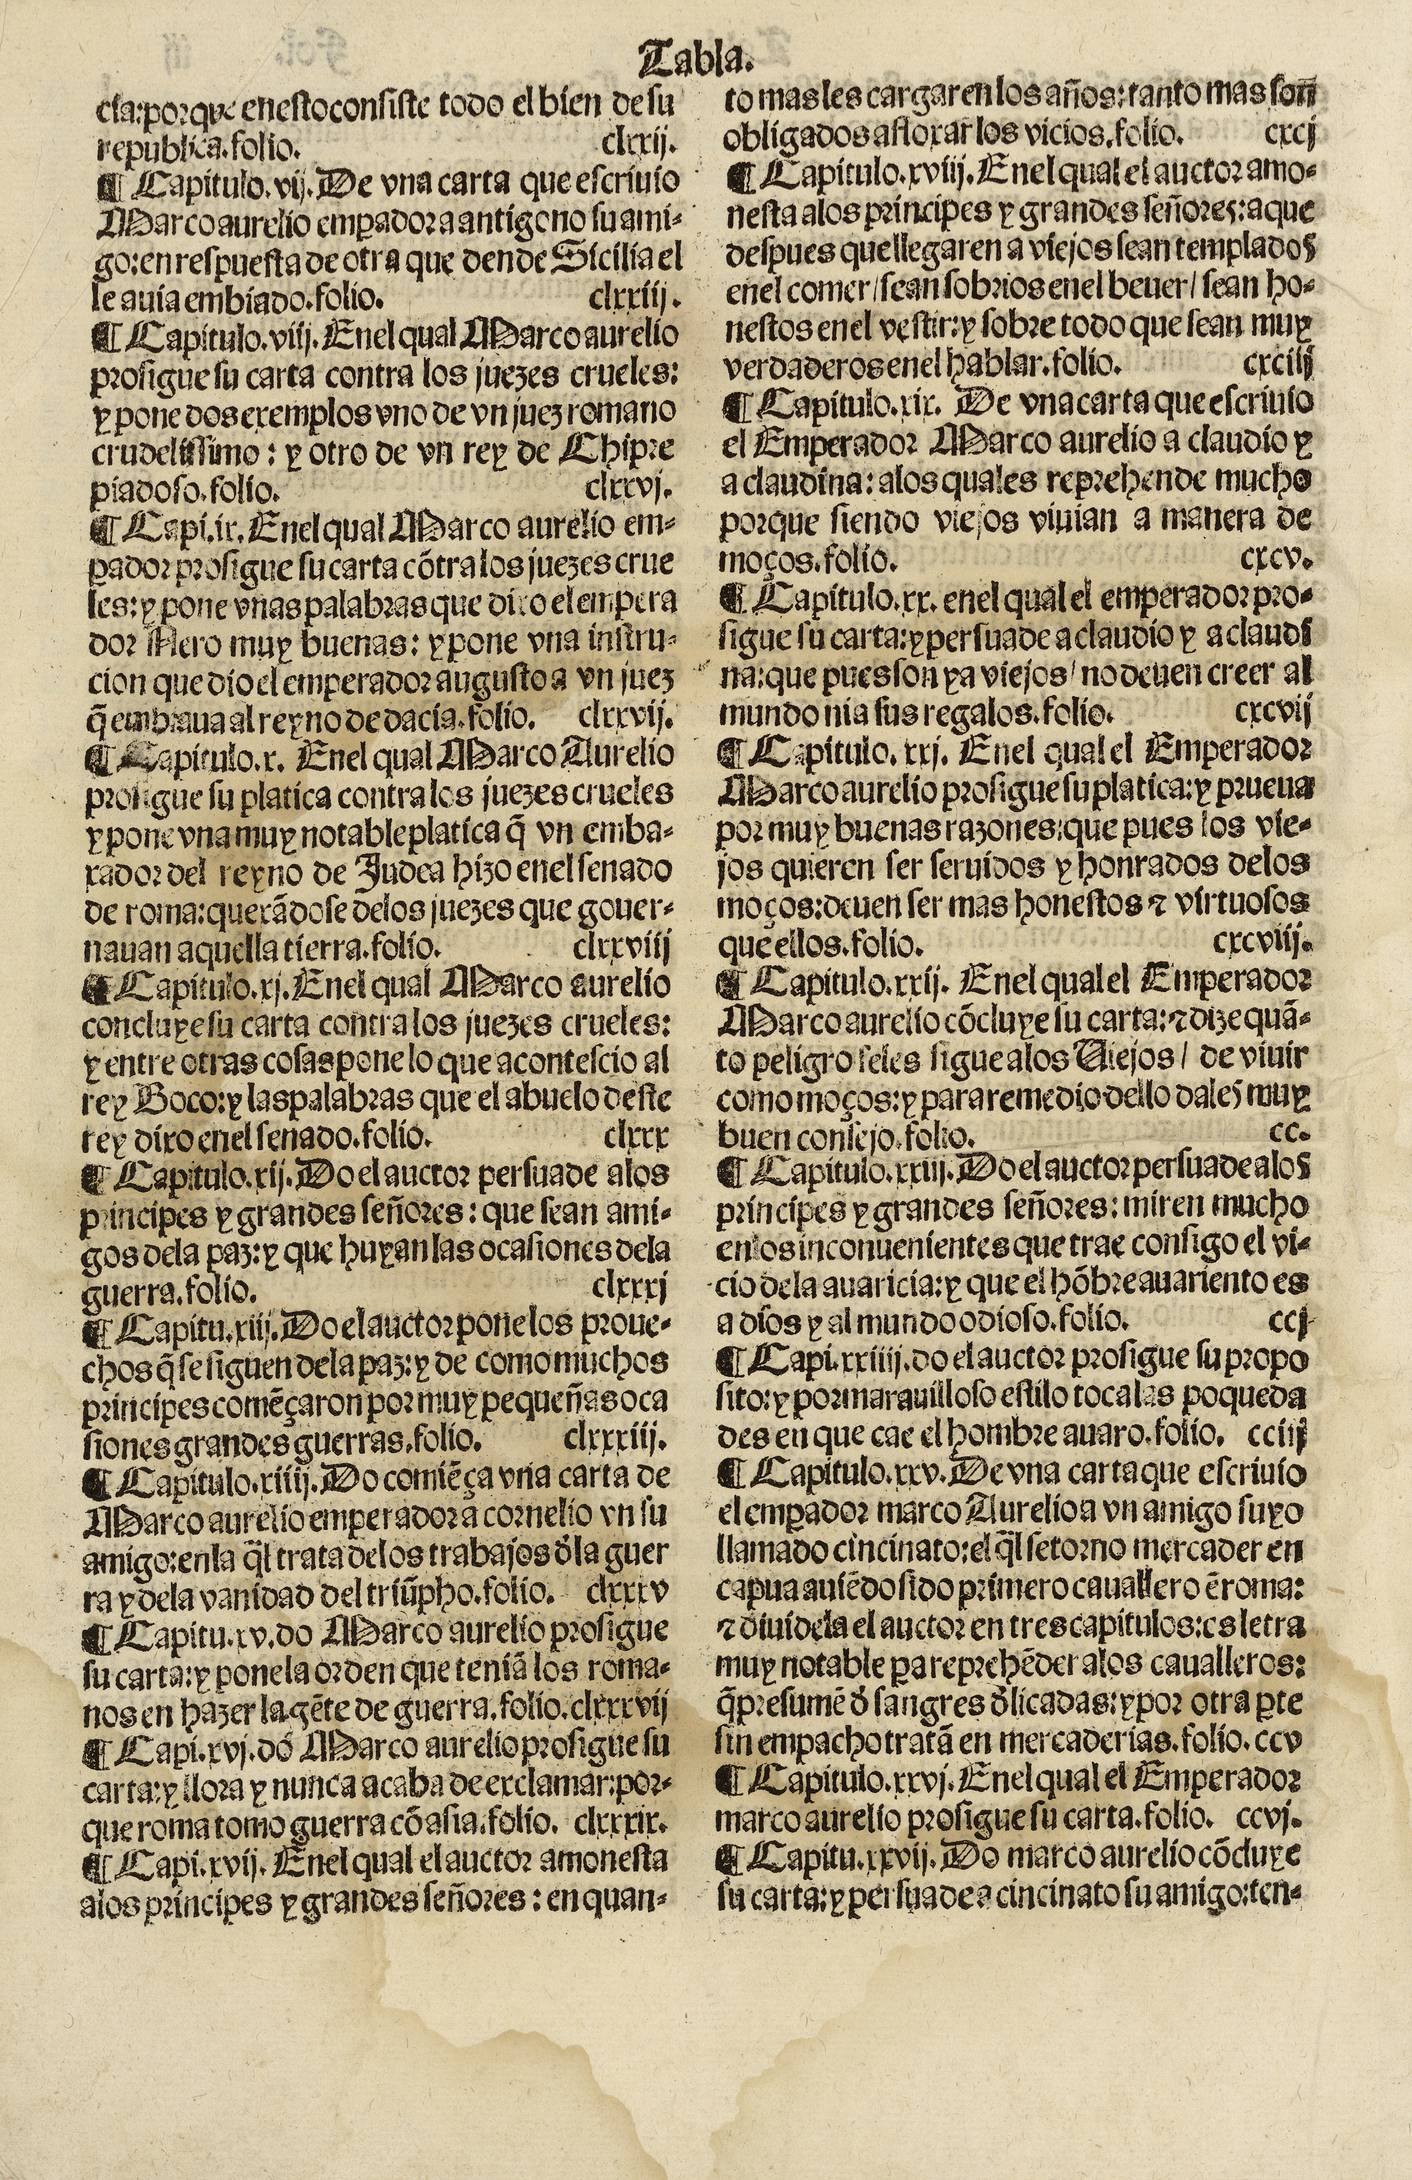 Tabla.
cia:porque enesto consiste todo el bien de su
republica.folio. clxxij.
¶ Capitulo.vij.De vna carta que escriuio
Marco aurelio emꝑador a antigono su ami-
go:en respuesta de otra que dende Sicilia el
le auia embiado.folio. clxxiij.
¶ Capitulo.viij.Enel qual Marco aurelio
prosigue su carta contra los juezes crueles:
y pone dos exemplos vno de vn juez romano
crudelissimo: y otro de vn rey de Chipre
piadoso.folio. clxxvj.
¶ Capi.ix.Enel qual Marco aurelio em-
ꝑador prosigue su carta cōtra los juezes crue
les:y pone vnas palabras que dixo el empera
dor Nero muy buenas: y pone vna instru-
cion que dio el emperador augusto a vn juez
q̄ embiaua al reyno de dacia.folio. clxxvij.
¶ Capitulo.x. Enel qual Marco Aurelio
prosigue su platica contra los juezes crueles
y pone vna muy notable platica q̄ vn emba-
xador del reyno de Judea hizo enel senado
de roma:querādose delos juezes que gouer-
nauan aquella tierra.folio. clxxviij
¶ Capitulo.xj.Enel qual Marco aurelio
concluye su carta contra los juezes crueles:
y entre otras cosas pone lo que acontescio al
rey Boco:y las palabras que el abuelo deste
rey dixo enel senado.folio. clxxx
¶ Capitulo.xij.Do el auctor persuade alos
principes y grandes señores: que sean ami-
gos dela paz:y que huyan las ocasiones dela
guerra.folio. clxxxj
¶ Capitu.xiij.Do el auctor pone los proue-
chos q̄ se siguen dela paz:y de como muchos
principes comēçaron por muy pequeñas oca
siones grandes guerras.folio. clxxxiij.
¶ Capitulo.xiiij.Do comiēça vna carta de
Marco aurelio emperador a cornelio vn su
amigo:enla q̄l trata delos trabajos d̄la guer
ra y dela vanidad del triūpho.folio. clxxxv
¶ Capitu.xv.do Marco aurelio prosigue
su carta:y pone la orden que teniā los roma-
nos en hazer la gēte de guerra.folio.clxxxvij
¶ Capi.xvj.do Marco aurelio prosigue su
carta:y llora y nunca acaba de exclamar:por-
que roma tomo guerra cō asia.folio. clxxxix.
¶ Capi.xvij.Enel qual el auctor amonesta
alos principes y grandes señores: en quan-
to mas les cargaren los años:tanto mas son
obligados a floxar los vicios.folio. cxcj
¶ Capitulo.xviij.Enel qual el auctor amo-
nesta alos principes y grandes señores:a que
despues que llegaren a viejos sean templados
enel comer/sean sobrios enel beuer/sean ho-
nestos enel vestir:y sobre todo que sean muy
verdaderos enel hablar.folio. cxciij
¶ Capitulo.xix. De vna carta que escriuio
el Emperador Marco aurelio a claudio y
a claudina: alos quales reprehende mucho
porque siendo viejos viuian a manera de
moços.folio. cxcv.
¶ Capitulo.xx.enel qual el emperador pro-
sigue su carta:y persuade a claudio y a claudi
na:que pues son ya viejos/no deuen creer al
mundo ni a sus regalos.folio. cxcvij
¶ Capitulo.xxj. Enel qual el Emperador
Marco aurelio prosigue su platica:y prueua
por muy buenas razones:que pues los vie-
jos quieren ser seruidos y honrados delos
moços:deuen ser mas honestos ⁊ virtuosos
que ellos.folio. cxcviij.
¶ Capitulo.xxij. Enel qual el Emperador
Marco aurelio cōcluye su carta:⁊ dize quā-
to peligro seles sigue alos Viejos/ de viuir
como moços:y para remedio dello dales muy
buen consejo.folio. cc.
¶ Capitulo.xxiij.Do el auctor persuade alos
principes y grandes señores: miren mucho
enlos inconuenientes que trae consigo el vi-
cio dela auaricia:y que el hōbre auariento es
a dios y al mundo odioso.folio. ccj
¶ Capi.xxiiij.do el auctor prosigue su propo
sito:y por marauilloso estilo toca las poqueda
des en que cae el hombre auaro.folio. cciij
¶ Capitulo.xxv.De vna carta que escriuio
el emꝑador marco Aurelio a vn amigo suyo
llamado cincinato:el q̄l se torno mercader en
capua auiēdo sido primero cauallero ē roma:
⁊ diuidela el auctor en tres capitulos:es letra
muy notable ꝑa reprehēder alos caualleros:
q̄ presumē d̄ sangres d̄licadas:y por otra ꝑte
sin empacho tratā en mercaderias.folio.ccv
¶ Capitulo.xxvj.Enel qual el Emperador
marco aurelio prosigue su carta.folio. ccvj.
¶ Capitu.xxvij.Do marco aurelio cōcluye
su carta:y persuade a cincinato su amigo:ten-